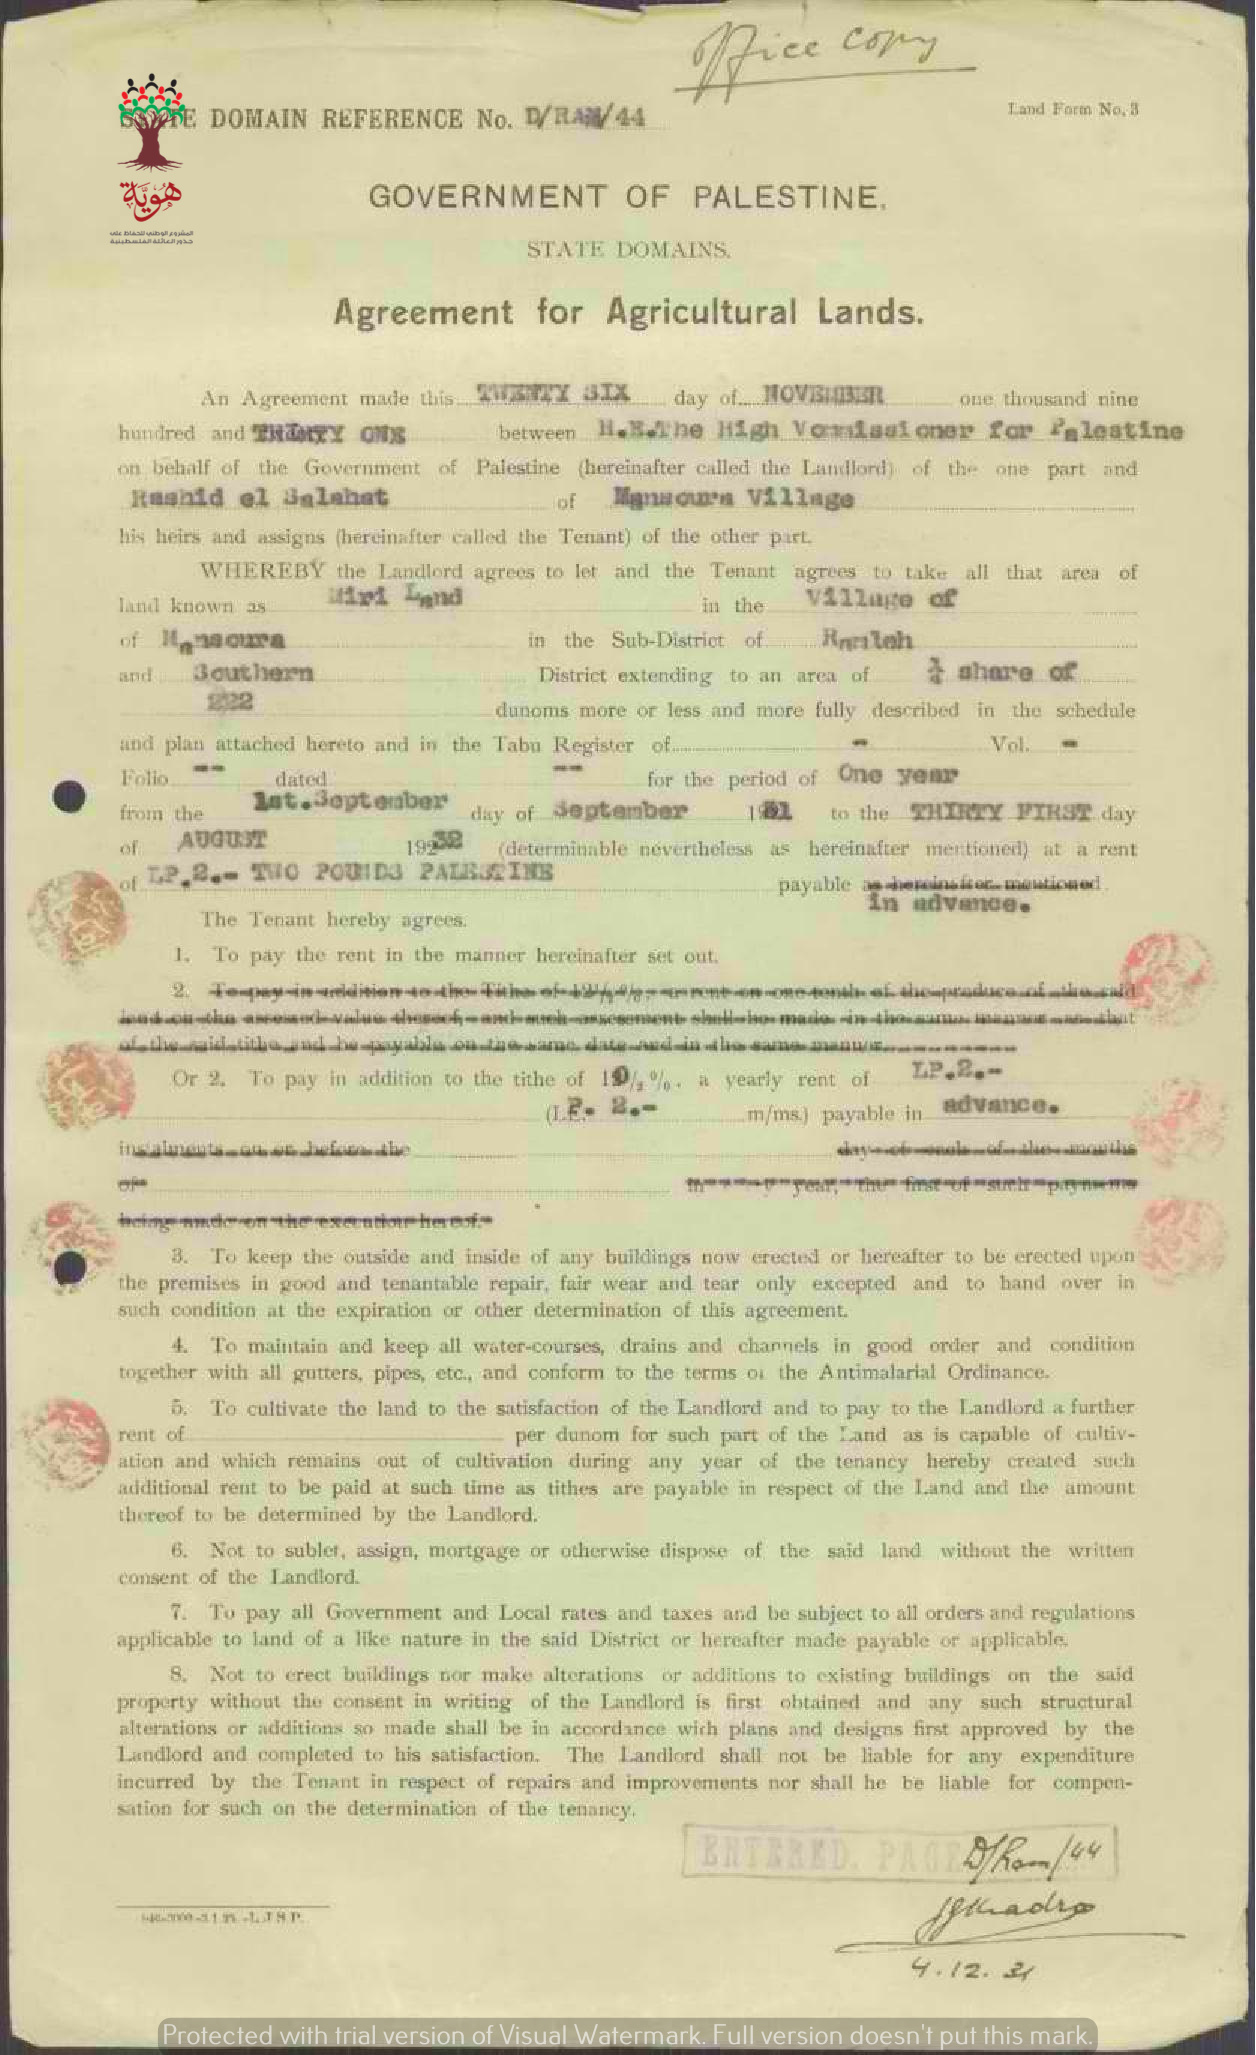 office copy
STATE DOMAIN REFERENCE No. D/RAM/44
Land Form No. 3
هوية
المشروع الوطني للحفاظ على
جذور العائلة الفلسطينية
GOVERNMENT OF PALESTINE.
STATE DOMAINS.
Agreement for Agricultural Lands.
An Agreement made this TWENTY SIX day of NOVEMBER one thousand nine
hundred and THIRTY ONE between H.E.The High Commissioner for Palestine
on behalf of the Government of Palestine (hereinafter called the Landlord) of the one part and
Rashid el Salahat of Mansoura Village
his heirs and assigns (hereinafter called the Tenant) of the other part.
WHEREBY the Landlord agrees to let and the Tenant agrees to take all that area of
land known as Miri Land in the Village of
of Mansoura in the Sub-District of Ramleh
and Southern District extending to an area of ¼ share of
222 dunoms more or less and more fully described in the schedule
and plan attached hereto and in the Tabu Register of - Vol. -
Folio -- dated -- for the period of One year
from the 1st.September day of September 1931 to the THIRTY FIRST day
of AUGUST 1932 (determinable nevertheless as hereinafter mentioned) at a rent
of LP.2.- TWO POUNDS PALESTINE payable as hereinafter mentioned.
in advance.
The Tenant hereby agrees.
1. To pay the rent in the manner hereinafter set out.
2. To pay in addition to the Tithe of 12½%, a rent on one-tenth of the produce of the said
land on the assessed value thereof, and such assessment shall be made in the same manner as that
of the said tithe and be payable on the same date and in the same manner.
Or 2. To pay in addition to the tithe of 10 %. a yearly rent of LP.2.-
(LP. 2.- m/ms.) payable in advance.
instalments on or before the day of each of the months
of in year, the first of such payments
being made on the execution hereof.
3. To keep the outside and inside of any buildings now erected or hereafter to be erected upon
the premises in good and tenantable repair, fair wear and tear only excepted and to hand over in
such condition at the expiration or other determination of this agreement.
4. To maintain and keep all water-courses, drains and channels in good order and condition
together with all gutters, pipes, etc., and conform to the terms of the Antimalarial Ordinance.
5. To cultivate the land to the satisfaction of the Landlord and to pay to the Landlord a further
rent of per dunom for such part of the Land as is capable of cultiv-
ation and which remains out of cultivation during any year of the tenancy hereby created such
additional rent to be paid at such time as tithes are payable in respect of the Land and the amount
thereof to be determined by the Landlord.
6. Not to sublet, assign, mortgage or otherwise dispose of the said land without the written
consent of the Landlord.
7. To pay all Government and Local rates and taxes and be subject to all orders and regulations
applicable to land of a like nature in the said District or hereafter made payable or applicable.
8. Not to erect buildings nor make alterations or additions to existing buildings on the said
property without the consent in writing of the Landlord is first obtained and any such structural
alterations or additions so made shall be in accordance with plans and designs first approved by the
Landlord and completed to his satisfaction. The Landlord shall not be liable for any expenditure
incurred by the Tenant in respect of repairs and improvements nor shall he be liable for compen-
sation for such on the determination of the tenancy.
ENTERED. PAGE D/Ram/44
4.12.31
Protected with trial version of Visual Watermark. Full version doesn't put this mark.